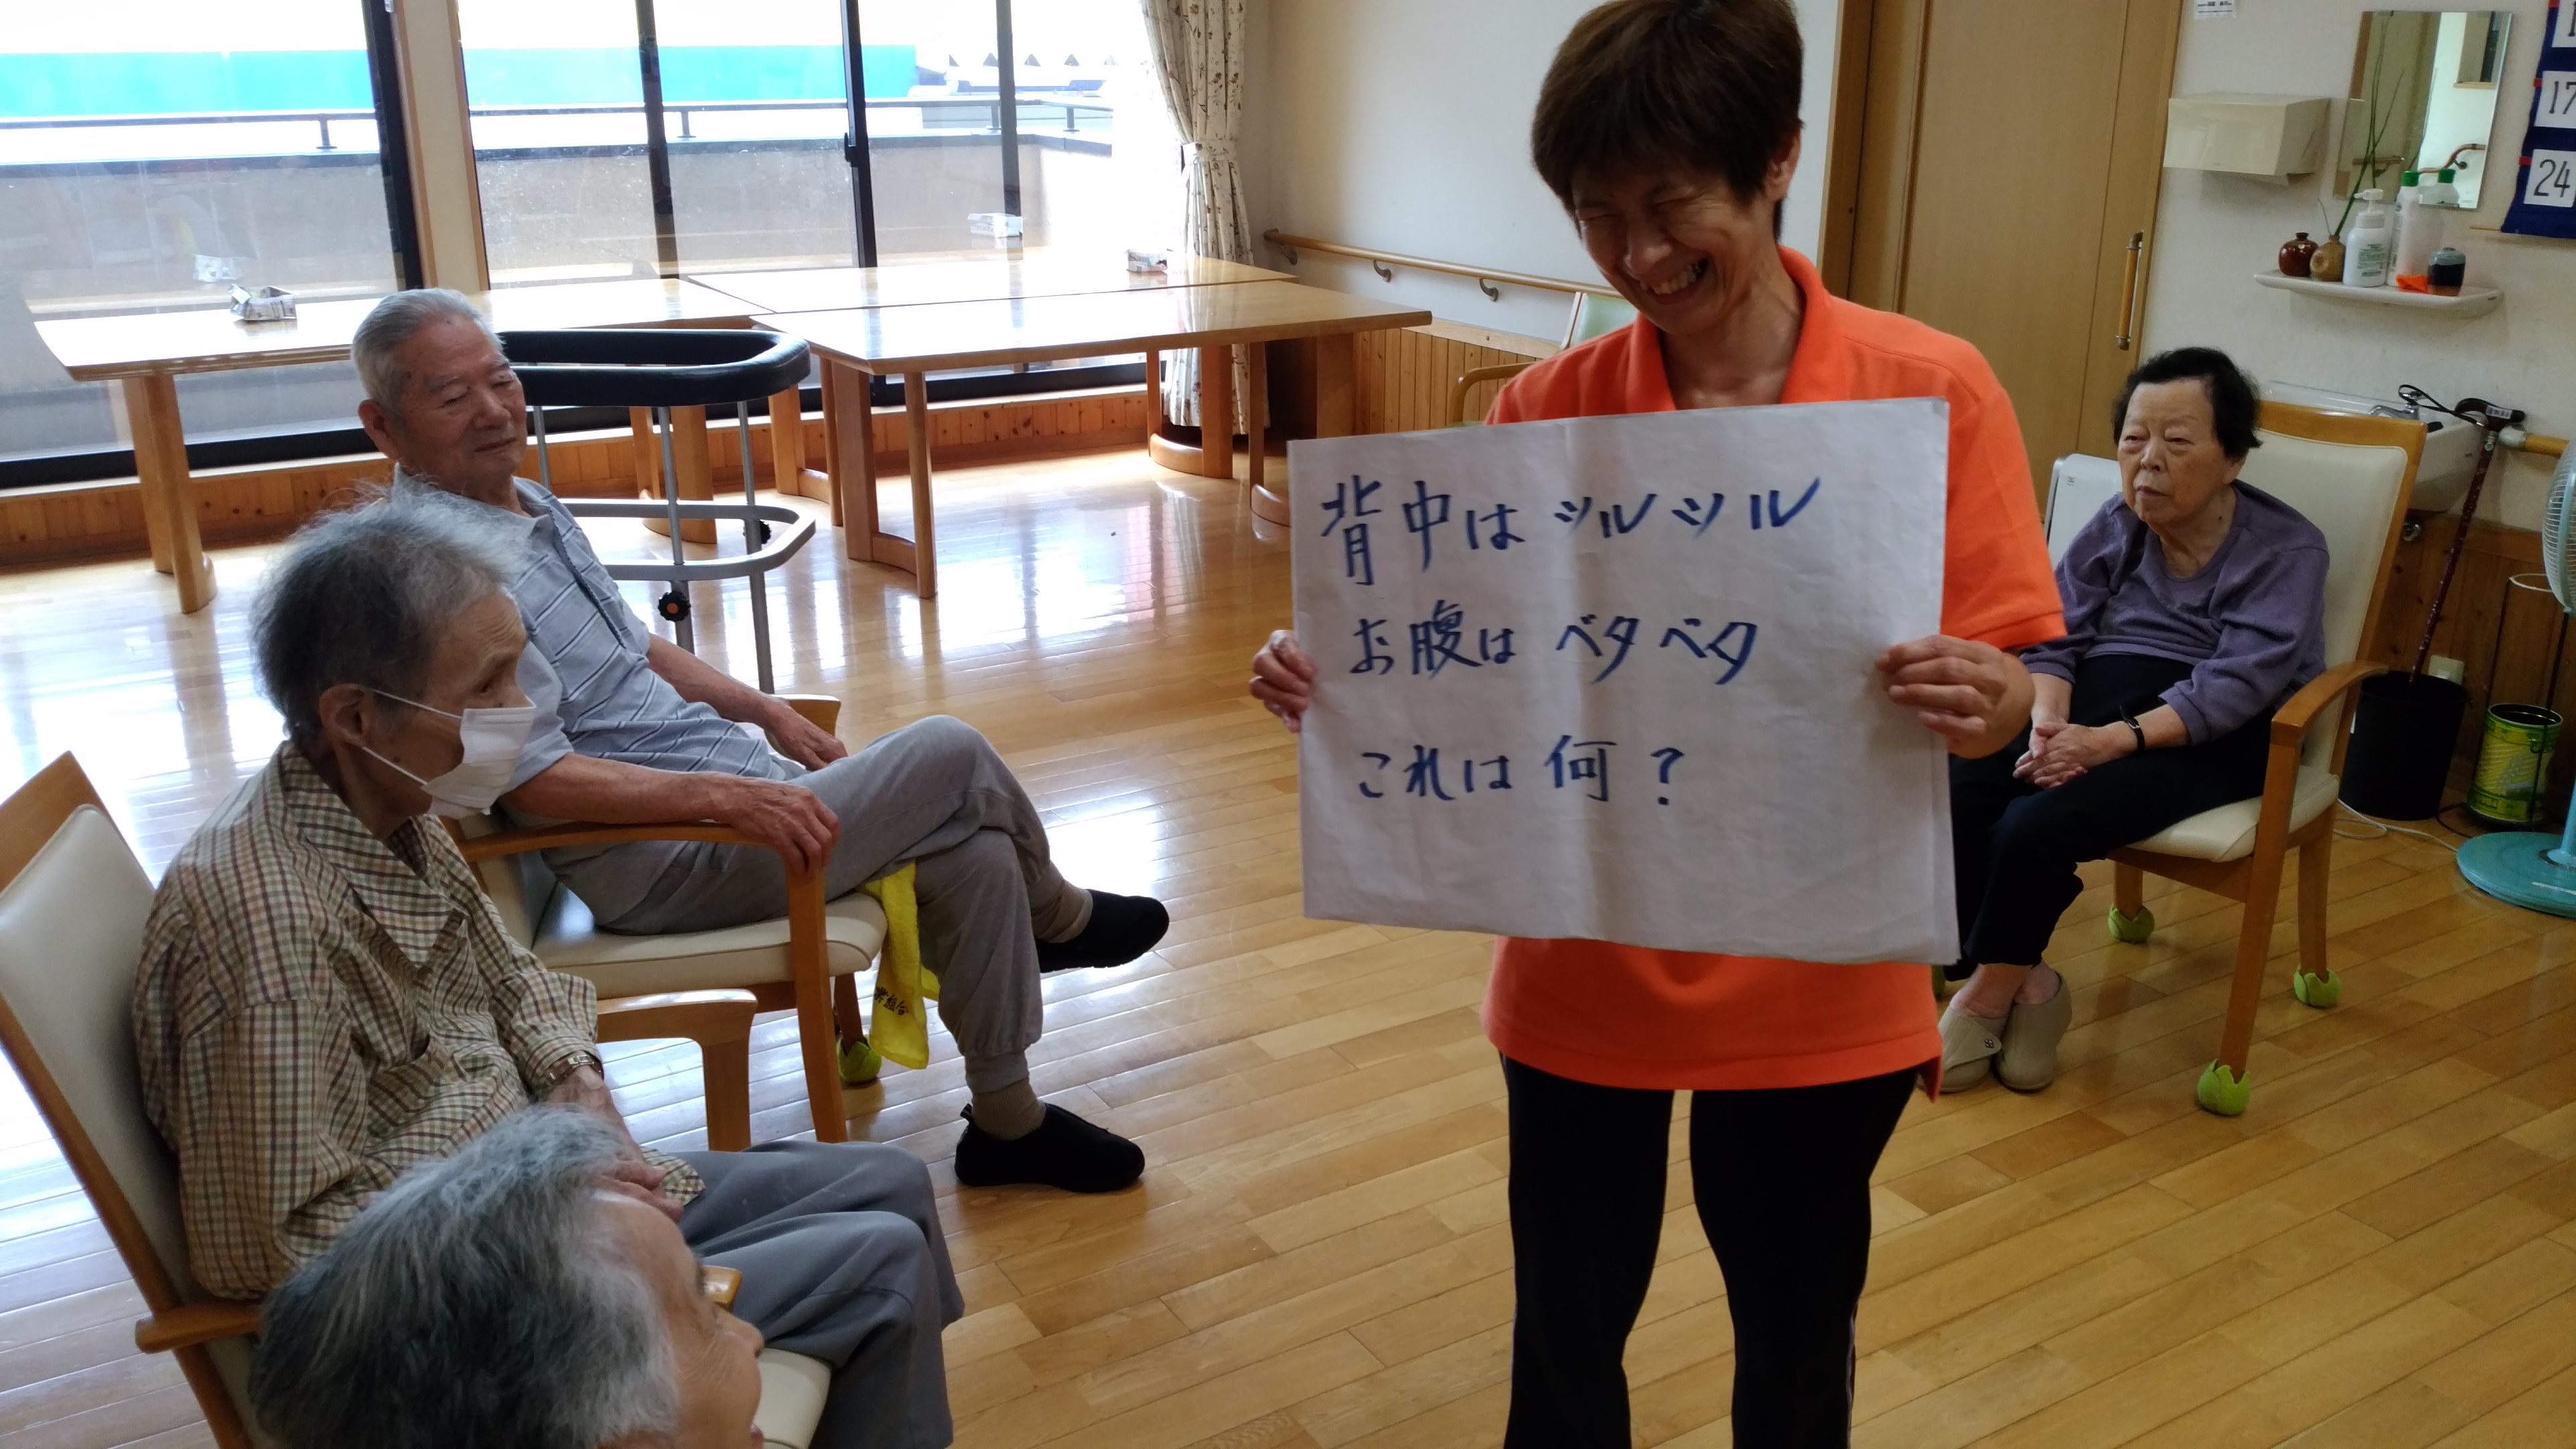 背中はツルツル
お腹はベタベタ
これは何？
17
24